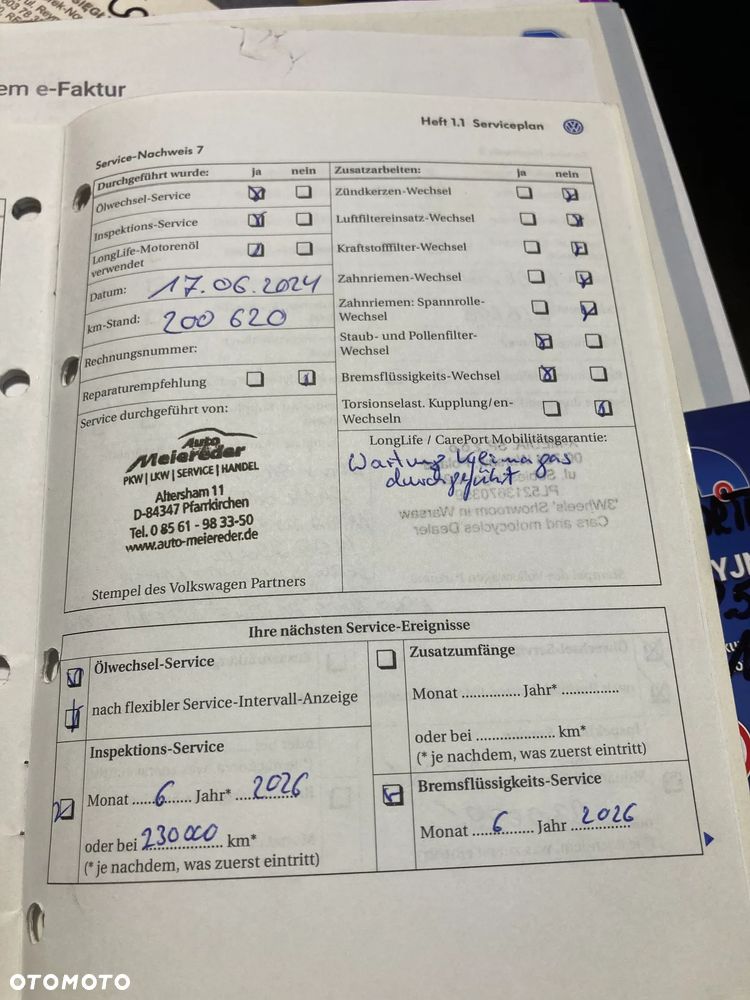 em e-Faktur
Heft 1.1 Serviceplan
Service-Nachweis 7
Durchgeführt wurde: ja nein
Ölwechsel-Service
Inspektions-Service
LongLife-Motorenöl
verwendet
Datum: 17.06.2024
km-Stand: 200 620
Rechnungsnummer:
Reparaturempfehlung
Service durchgeführt von:
Auto
Meiereder
PKW | LKW | SERVICE | HANDEL
Altersham 11
D-84347 Pfarrkirchen
Tel. 0 85 61 - 98 33-50
www.auto-meiereder.de
Stempel des Volkswagen Partners
Zusatzarbeiten: ja nein
Zündkerzen-Wechsel
Luftfiltereinsatz-Wechsel
Kraftstofffilter-Wechsel
Zahnriemen-Wechsel
Zahnriemen: Spannrolle-
Wechsel
Staub- und Pollenfilter-
Wechsel
Bremsflüssigkeits-Wechsel
Torsionselast. Kupplung/en-
Wechseln
LongLife / CarePort Mobilitätsgarantie:
Wartung Klimagas
durchgeführt
'3Wheels' Showroom in Warsaw
Cars and motocycles Dealer
Ihre nächsten Service-Ereignisse
Ölwechsel-Service
nach flexibler Service-Intervall-Anzeige
Inspektions-Service
Monat ......6...... Jahr* ...2026...
oder bei 230000 km*
(* je nachdem, was zuerst eintritt)
Zusatzumfänge
Monat .............. Jahr* ..............
oder bei ................... km*
(* je nachdem, was zuerst eintritt)
Bremsflüssigkeits-Service
Monat ......6...... Jahr ...2026...
OTOMOTO